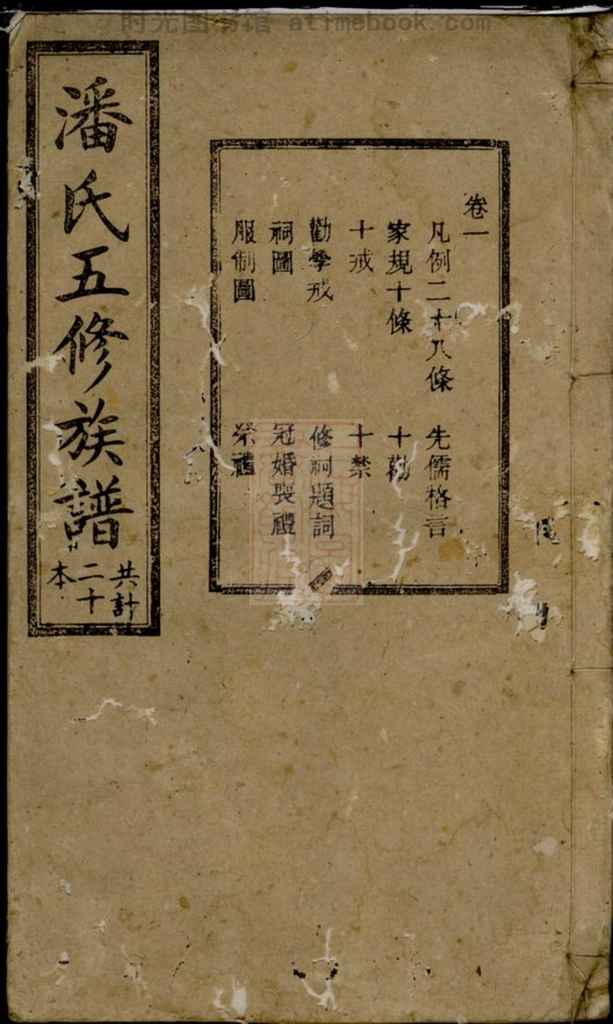 时光图书馆 atimebook.com
卷一
凡例二十八條 先儒格言
家規十條 十勸
十戒 十禁
勸學戒 修祠題詞
祠圖 冠婚喪禮
服制圖 祭禮
潘氏五修族譜
共計
二十
本